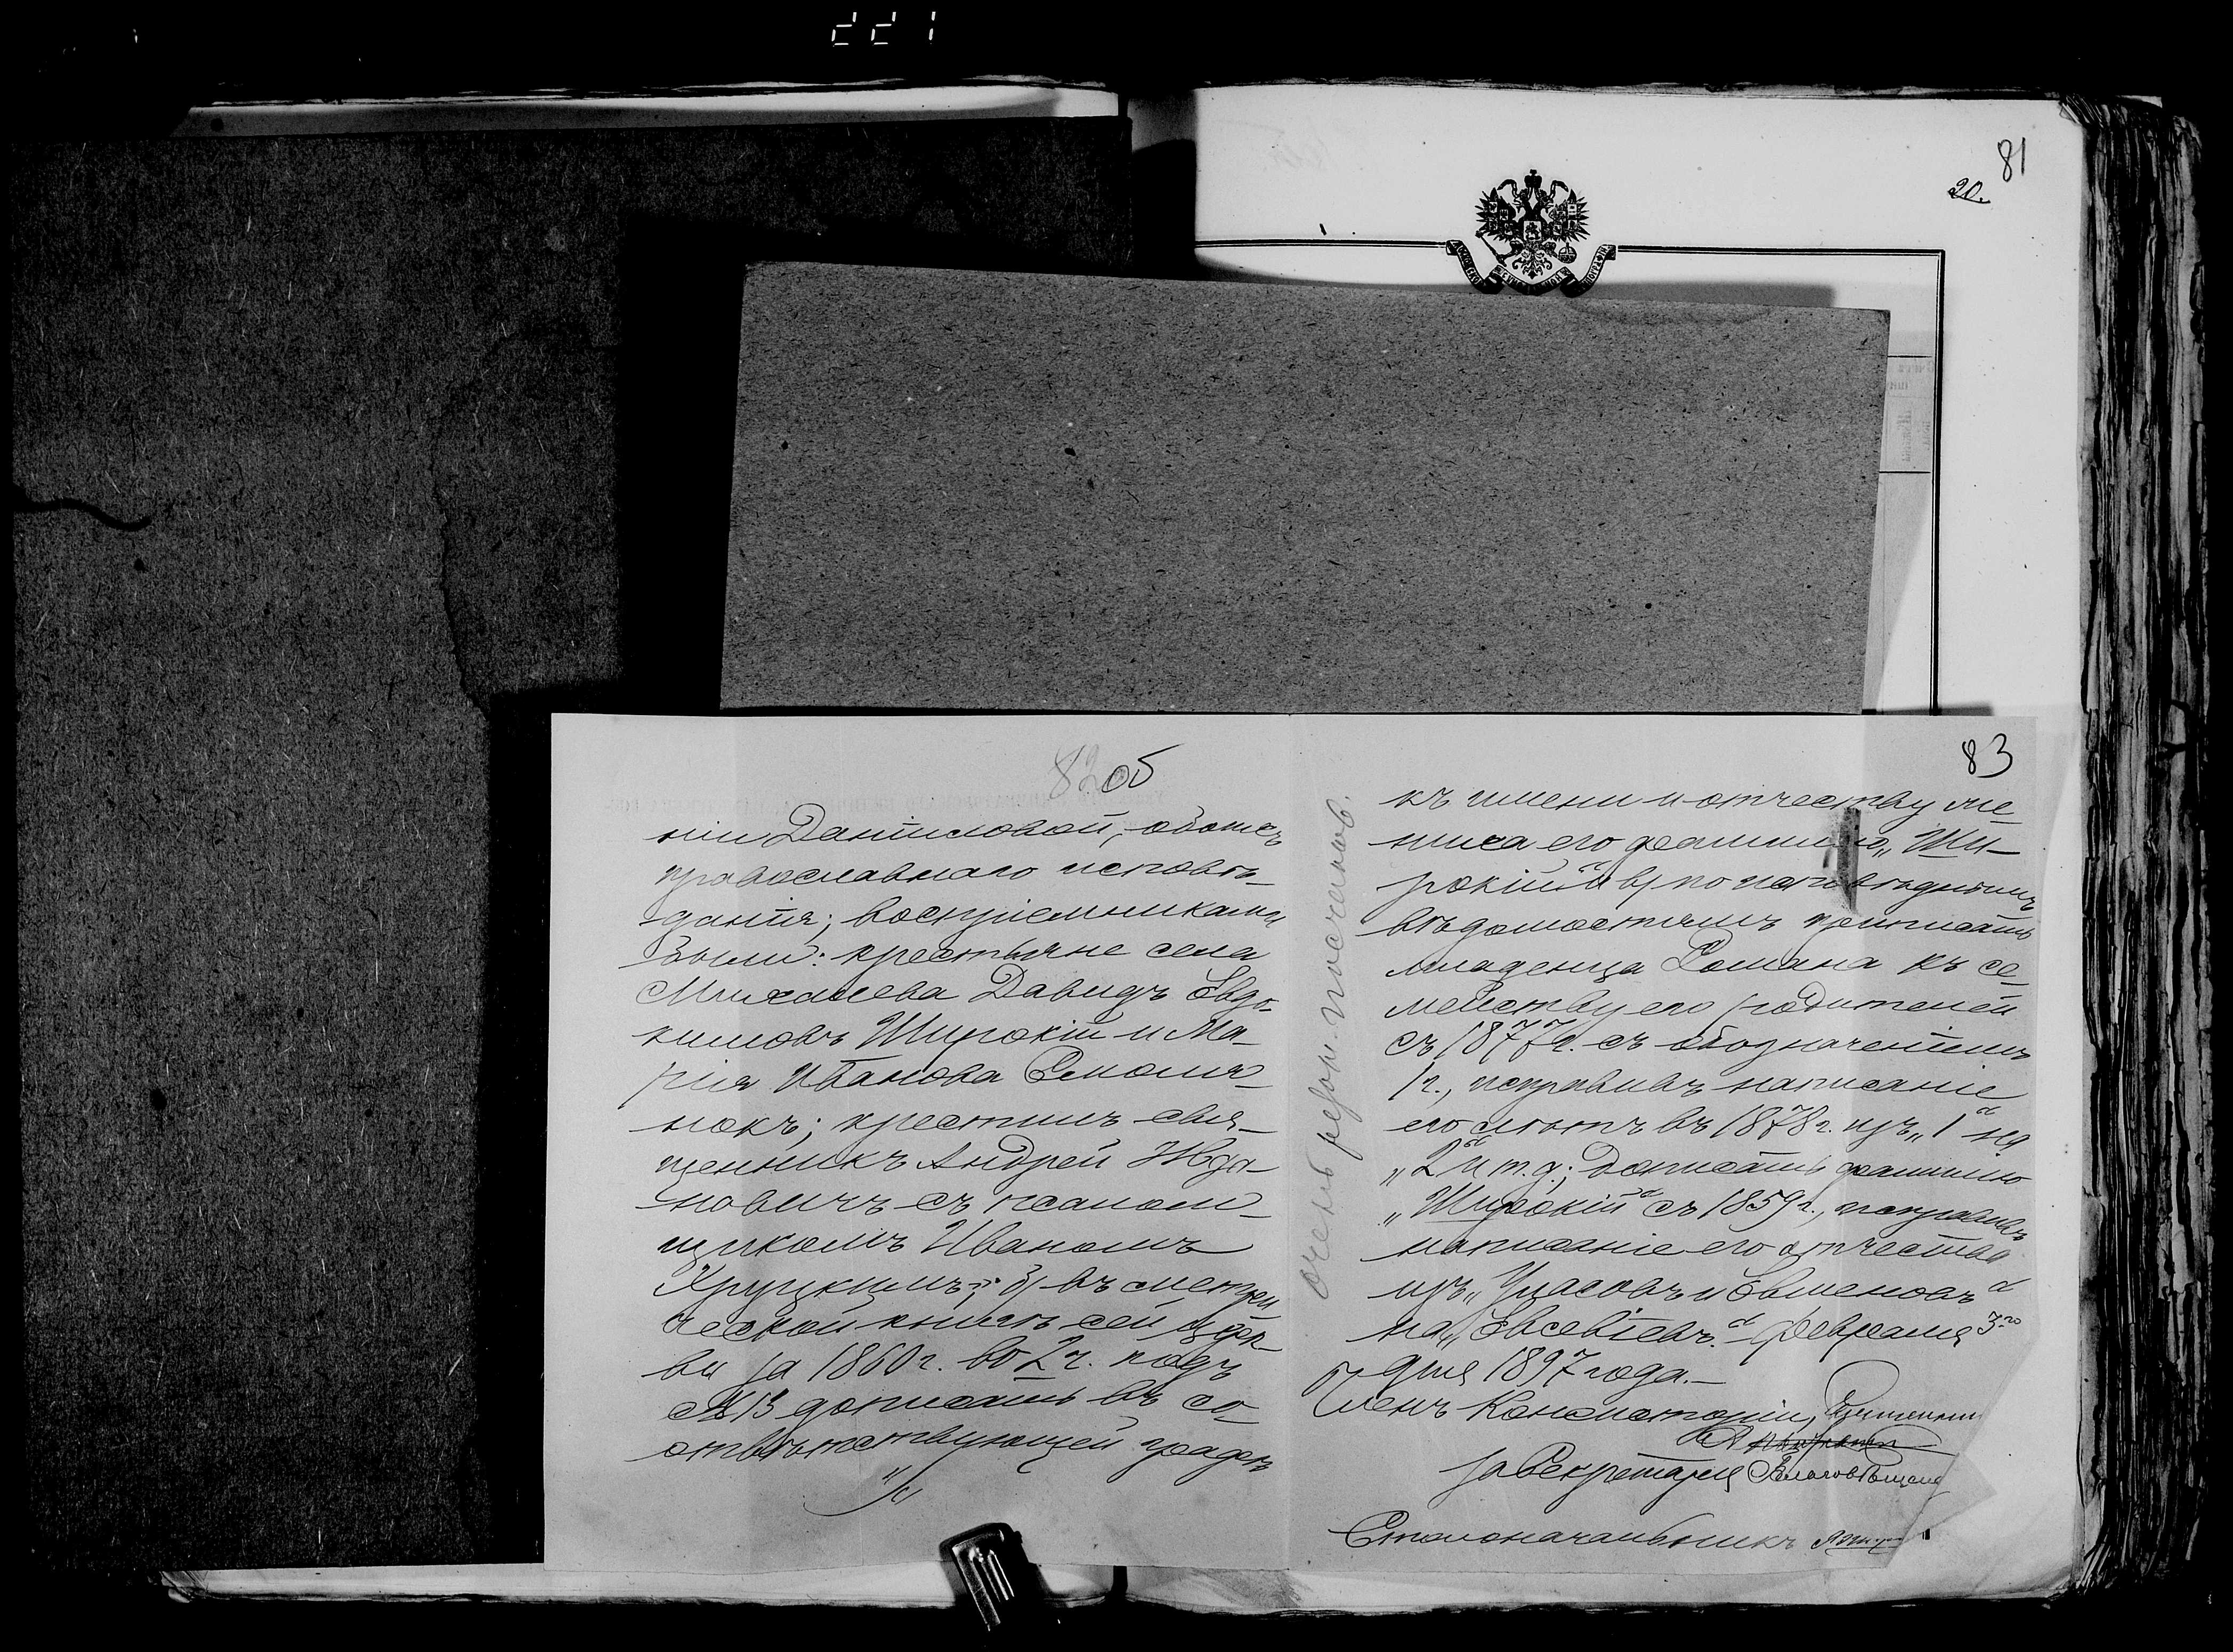 81
20.
82 об
ніи Даниловой, - обоихъ
православнаго исповѣ-
данія; воспріемниками
были: крестьяне села
Михалева Давидъ Евдо-
кимовъ Широкій и Ма-
рія Иванова Смоля-
нокъ; крестилъ свя-
щенникъ Андрей Жда-
новичъ съ псалом-
щикомъ Иваномъ
Хруцкимъ; б) въ метри
ческой книгѣ сей церк-
ви за 1860 г. во 2 ч. подъ
№ 13 дописать въ со-
отвѣтствующей графѣ
83
къ имени и отчеству же
ниха его фамилію „Ши-
рокій“ и в) по исповѣднымъ
вѣдомостямъ приписать
младенца Романа къ се-
мейству его родителей
съ 1877 г. съ обозначеніемъ
1 г., исправивъ написаніе
его лѣтъ въ 1878 г. изъ „1“ на
„2“ и т. д.; дописать фамилію
„Широкій“ съ 1859 г., исправивъ
написаніе его отчества
изъ „Уласовъ и Евменовъ“
на „Евсевіевъ“. - Февраля 3го
дня 1897 года. -
Членъ Консисторіи, Священник
За Секретаря
Столоначальникъ